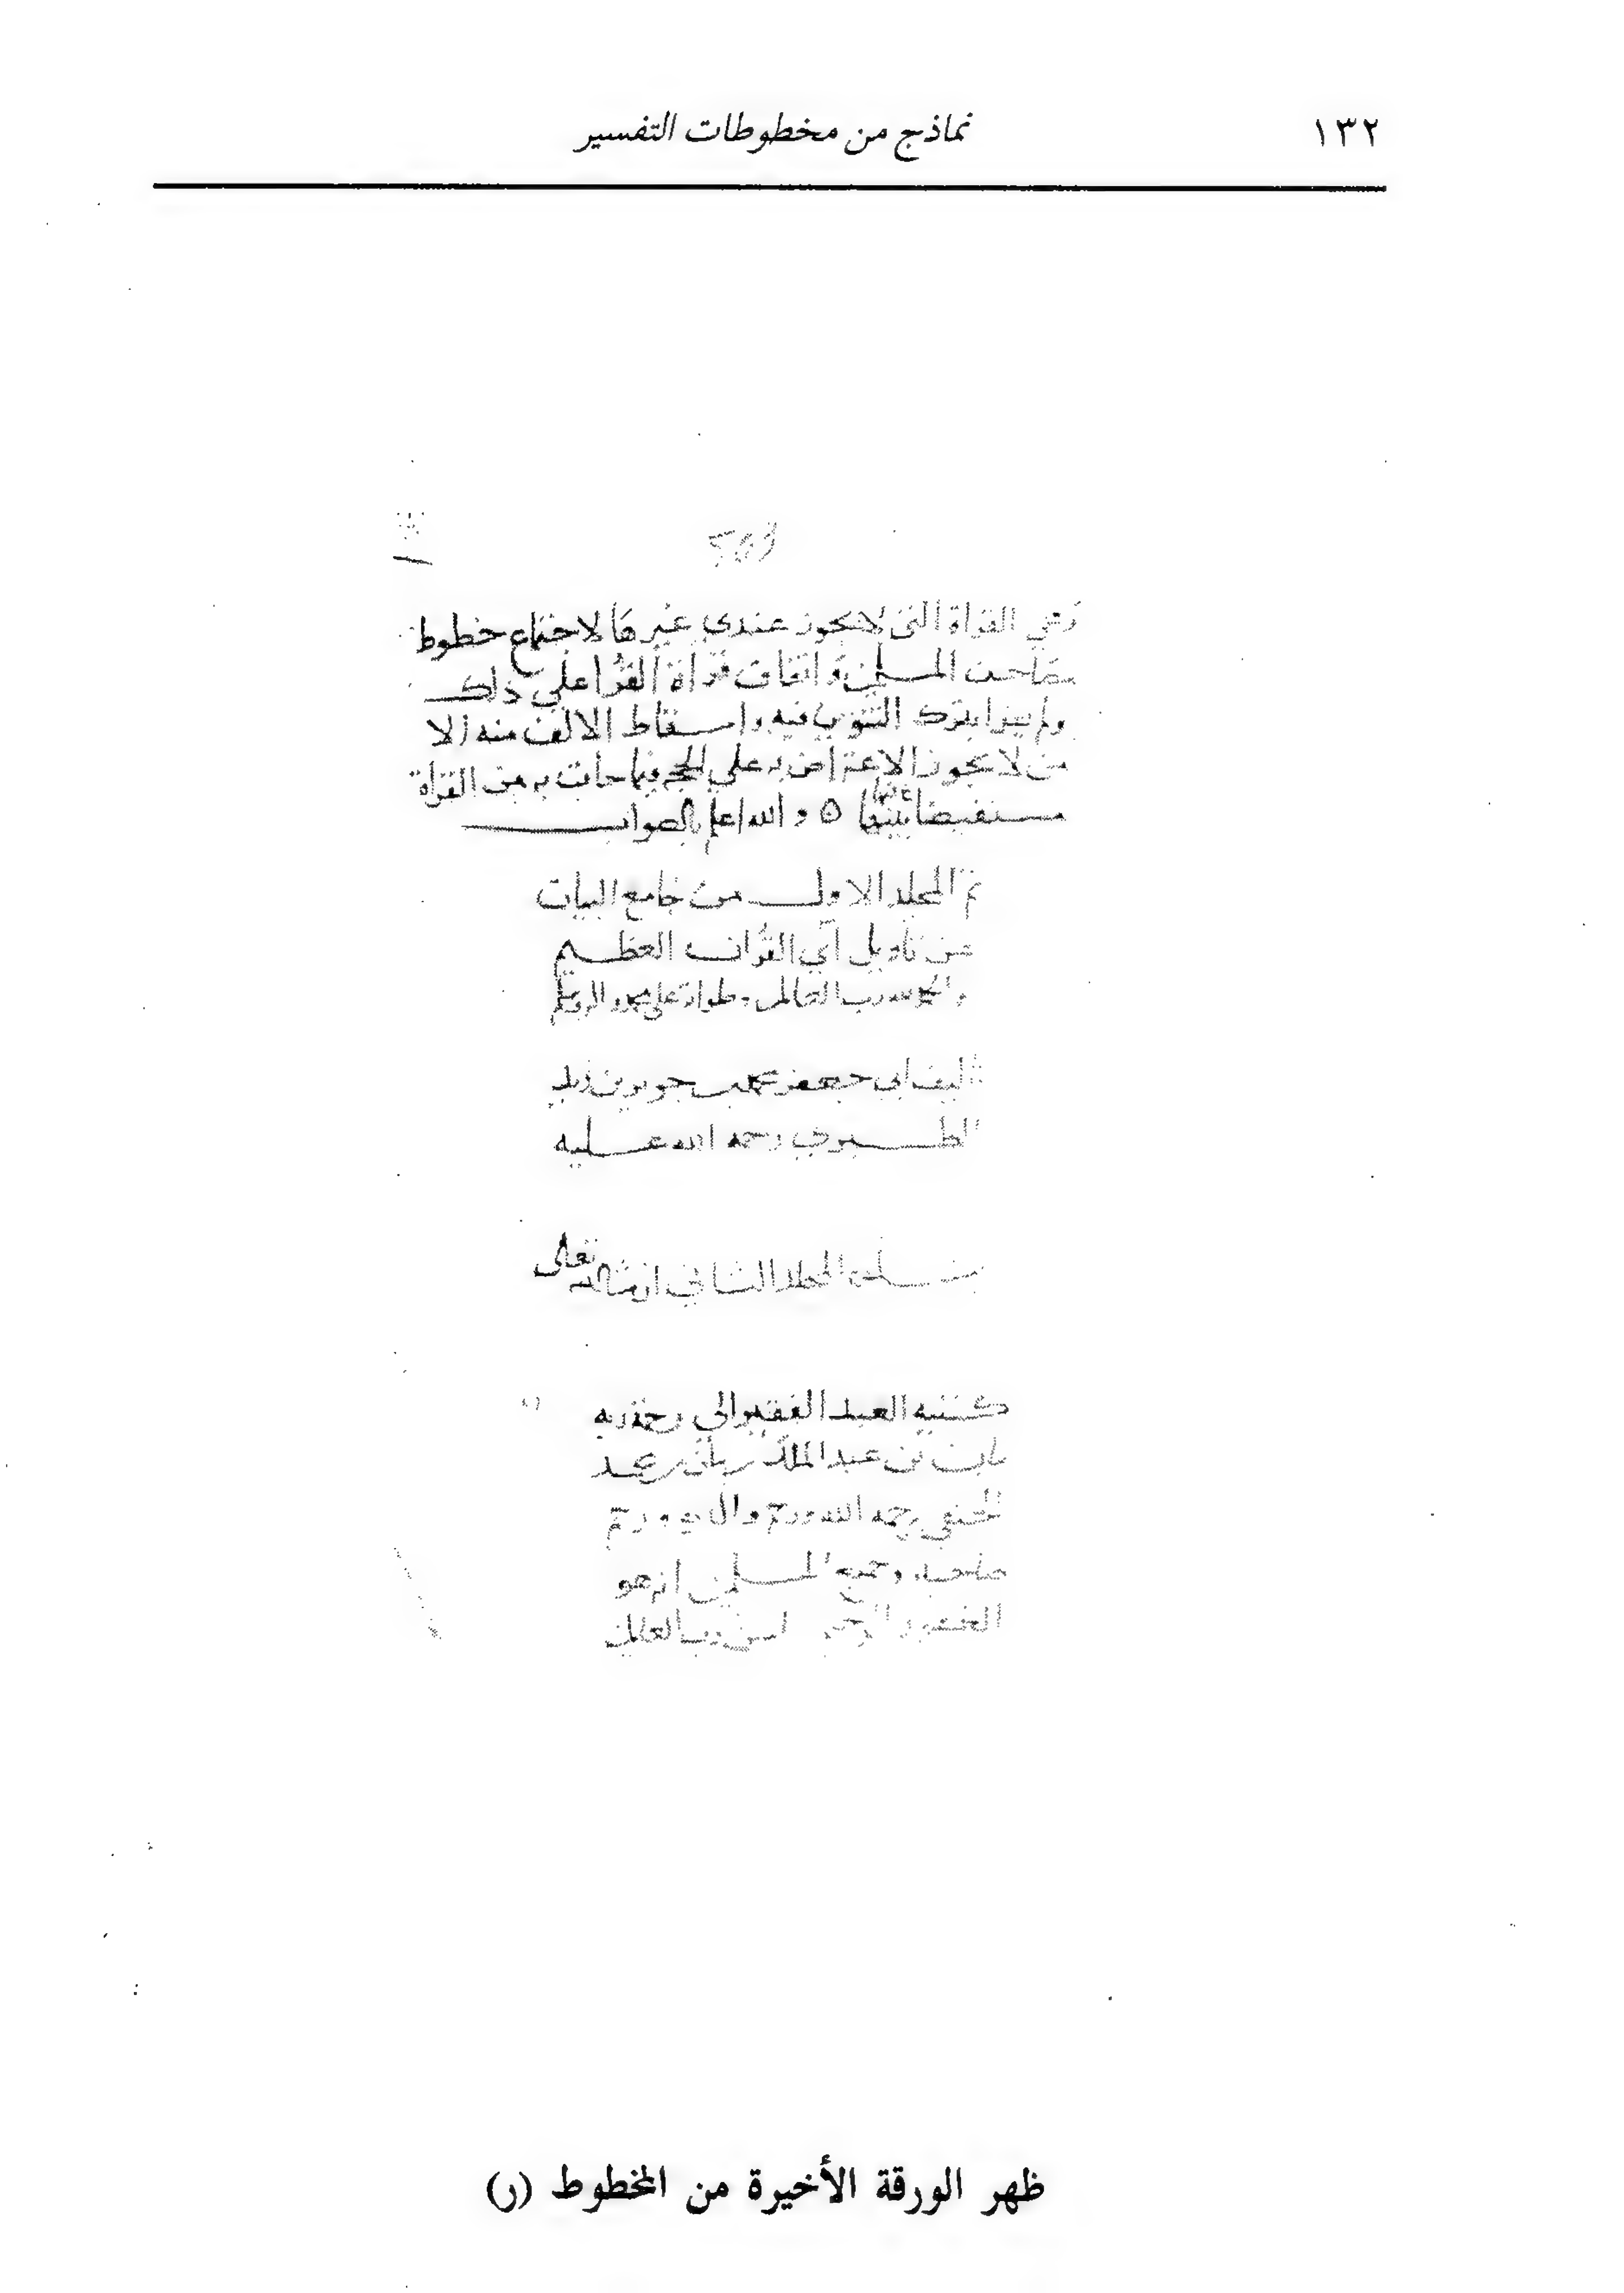 ١٣٢
نماذج من مخطوطات التفسير
وهي القراة التي لا يجوز عندي غيرها لاجتماع خطوط
مصاحف المسلمين واتفاق قراة القرا على ذلك
ولم يقرا بترك التنوين فيه واسقاط الالف منه الا
من لا يجوز الاعتراض به على الحجه فيما جات به من القراة
مستفيضا بينها ه والله اعلم بالصواب
تم المجلد الاول من جامع البيان
عن تاويل آي القران العظيم
والحمد لله رب العالمين وصلواته على محمد واله وسلم
تاليف ابي جعفر محمد بن جرير بن يزيد
الطبري رحمه الله عليه
المجلد الثاني ان شا الله تعالى
كتبه العبد الفقير الى رحمة ربه
بن عبد الملك محمد
الحنفي رحمه الله ورحم والديه ورحم
صاحبه وجميع المسلمين انه هو
الغفور الرحيم امين رب العالمين
ظهر الورقة الأخيرة من المخطوط (ر)